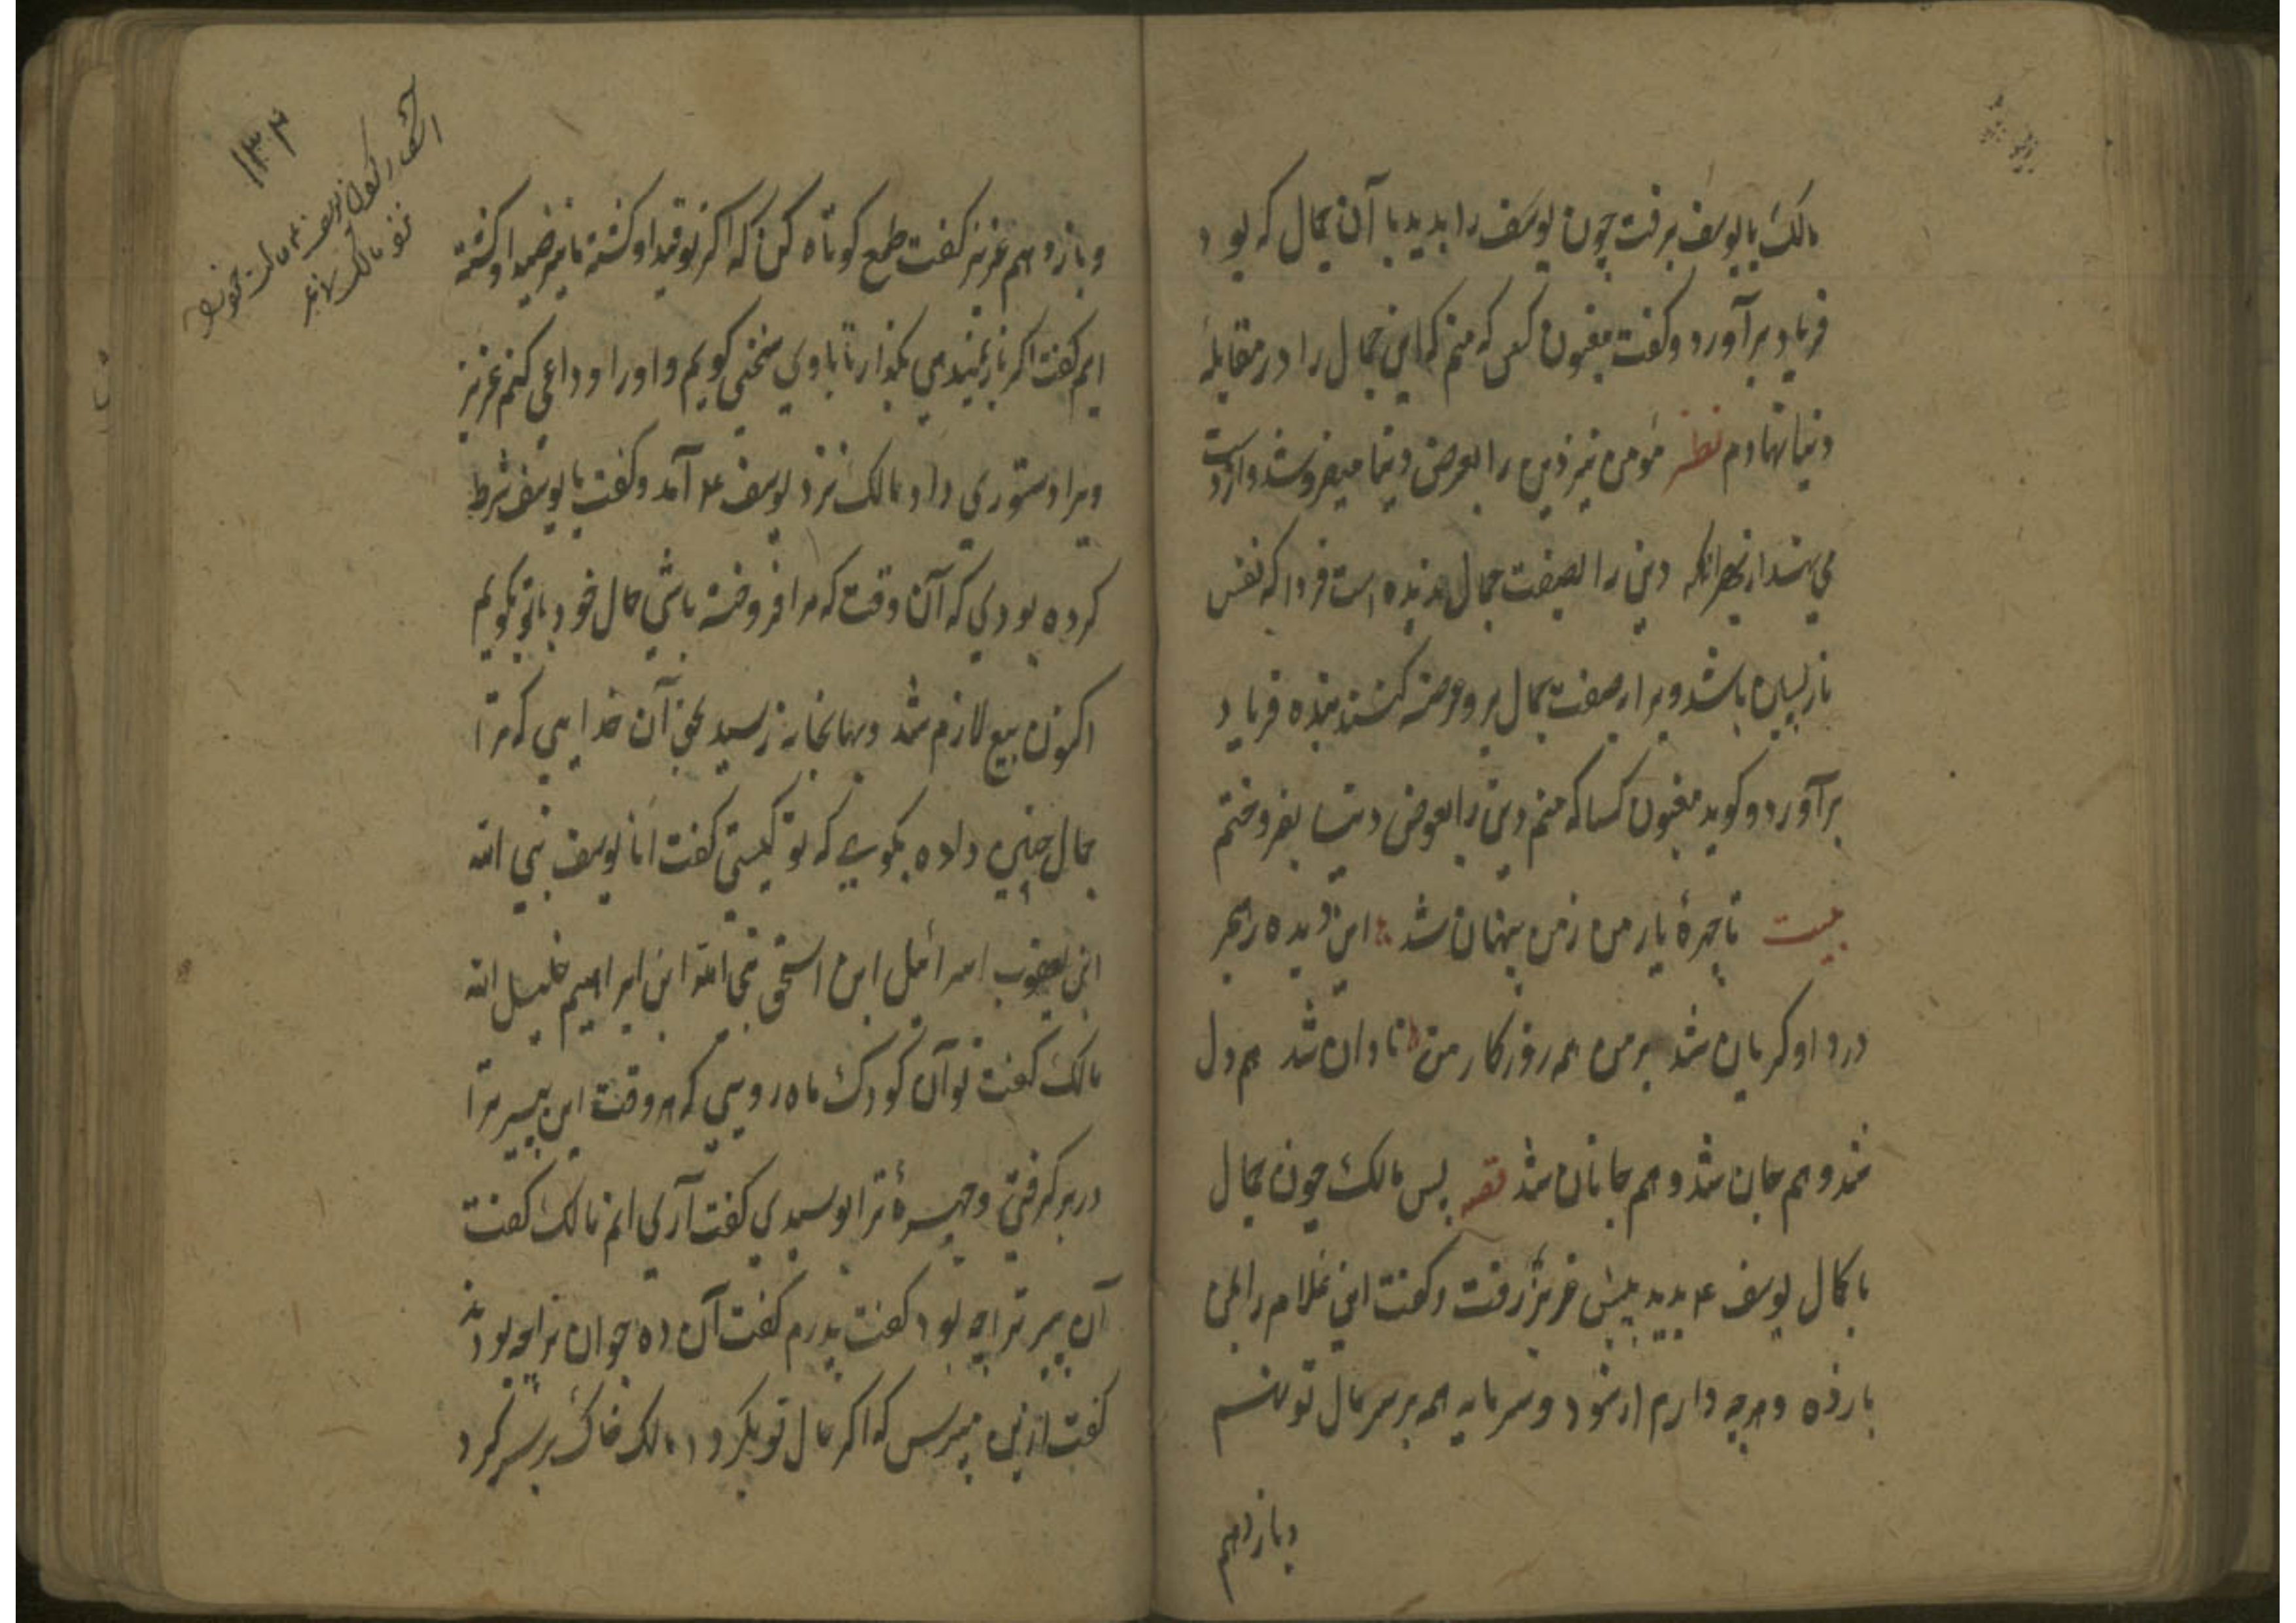 مالک با یوسف برفت چون یوسف را بدید با آن جمال که بود
فریاد برآورد و کفت مغبون کس که منم که این جمال را در مقابله
دنیا نهادم نظر مؤمن نیز دین را بعوض دنیا میفروشد و
دین را بصفت جمال ندیده است فردا که نفس
بازپسین باشد و برا بصفت جمال برو عرضه کنند بنده فریاد
برآورد و کوید مغبون کسا که منم دین را بعوض دنیا بفروختم
بیت تا چهرهٔ یار من زمن پنهان شد این دیده زهجر
درد او کریان شد بر من همه روزکار من تاوان شد هم دل
شد و هم جان شد و هم جانان شد قصه پس مالک چون جمال
با کمال یوسف ع بدید پیش عزیز رفت و کفت این غلام را بمن
باز ده و هرچه دارم از سود و سرمایه همه بر سر مال تو نهم
و باز دهم
و باز دهم عزیز کفت طمع کوتاه کن که اکر تو قید او کشته ما نیز صید او کشته
ایم کفت اکر باز نمیدهی بکذار تا با وی سخنی کویم و او را وداعی کنم عزیز
ویرا دستوری داد مالک نزد یوسف ع آمد و کفت با یوسف شرط
کرده بودی که آن وقت که مرا فروخته باشی حال خود با تو بکویم
اکنون بیع لازم شد و بها بخانه رسید بحق آن خدایی که ترا
جمال چنین داده بکوی که تو کیستی کفت انا یوسف نبی الله
ابن یعقوب اسرائیل ابن اسحق نبی الله ابن ابراهیم خلیل الله
مالک کفت تو آن کودک ماه رویی که هر وقت این پیر ترا
در بر کرفتی و چهرهٔ ترا بوسیدی کفت آری انم مالک کفت
آن پیر ترا چه بود کفت پدرم کفت آن ده جوان ترا چه بودند
کفت ازین مپرس که اکر حال تو بکردد مالک خاک بر سر کرد
۱۳۴